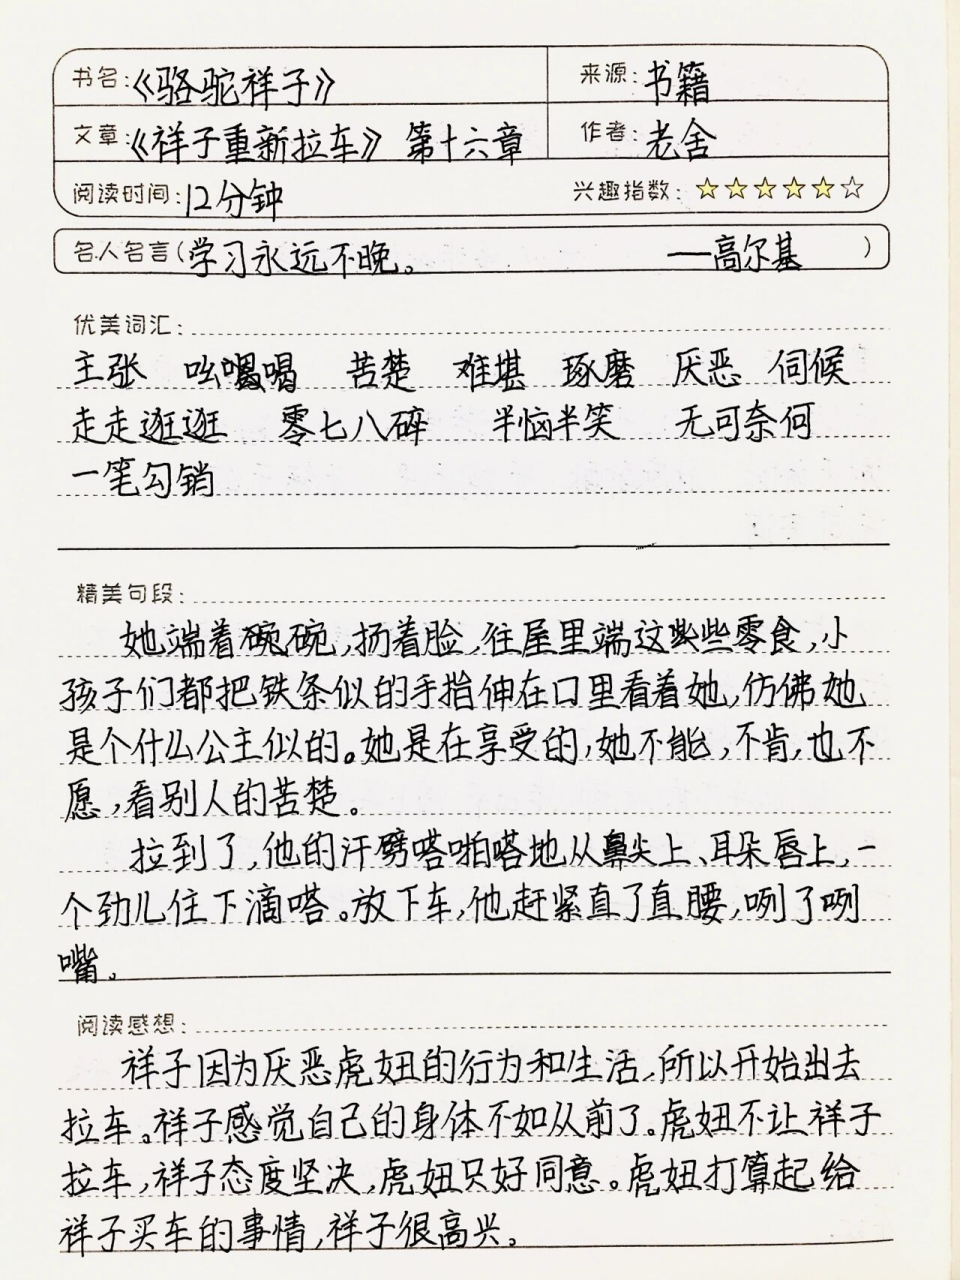 书名:《骆驼祥子》 来源:书籍
文章:《祥子重新拉车》 第十六章 作者:老舍
阅读时间:12分钟 兴趣指数:★★★★★☆
名人名言(学习永远不晚。 ——高尔基)
优美词汇:
主张 吆喝 苦楚 难堪 琢磨 厌恶 伺候
走走逛逛 零七八碎 半恼半笑 无可奈何
一笔勾销
精美句段:
她端着碗碗,扬着脸,往屋里端这些些零食,小
孩子们都把铁条似的手指伸在口里看着她,仿佛她
是个什么公主似的。她是在享受的,她不能,不肯,也不
愿,看别人的苦楚。
拉到了,他的汗劈嗒啪嗒地从鼻尖上、耳朵唇上,一
个劲儿住下滴嗒。放下车,他赶紧直了直腰,咧了咧
嘴。
阅读感想:
祥子因为厌恶虎妞的行为和生活,所以开始出去
拉车。祥子感觉自己的身体不如从前了。虎妞不让祥子
拉车,祥子态度坚决,虎妞只好同意。虎妞打算起给
祥子买车的事情,祥子很高兴。